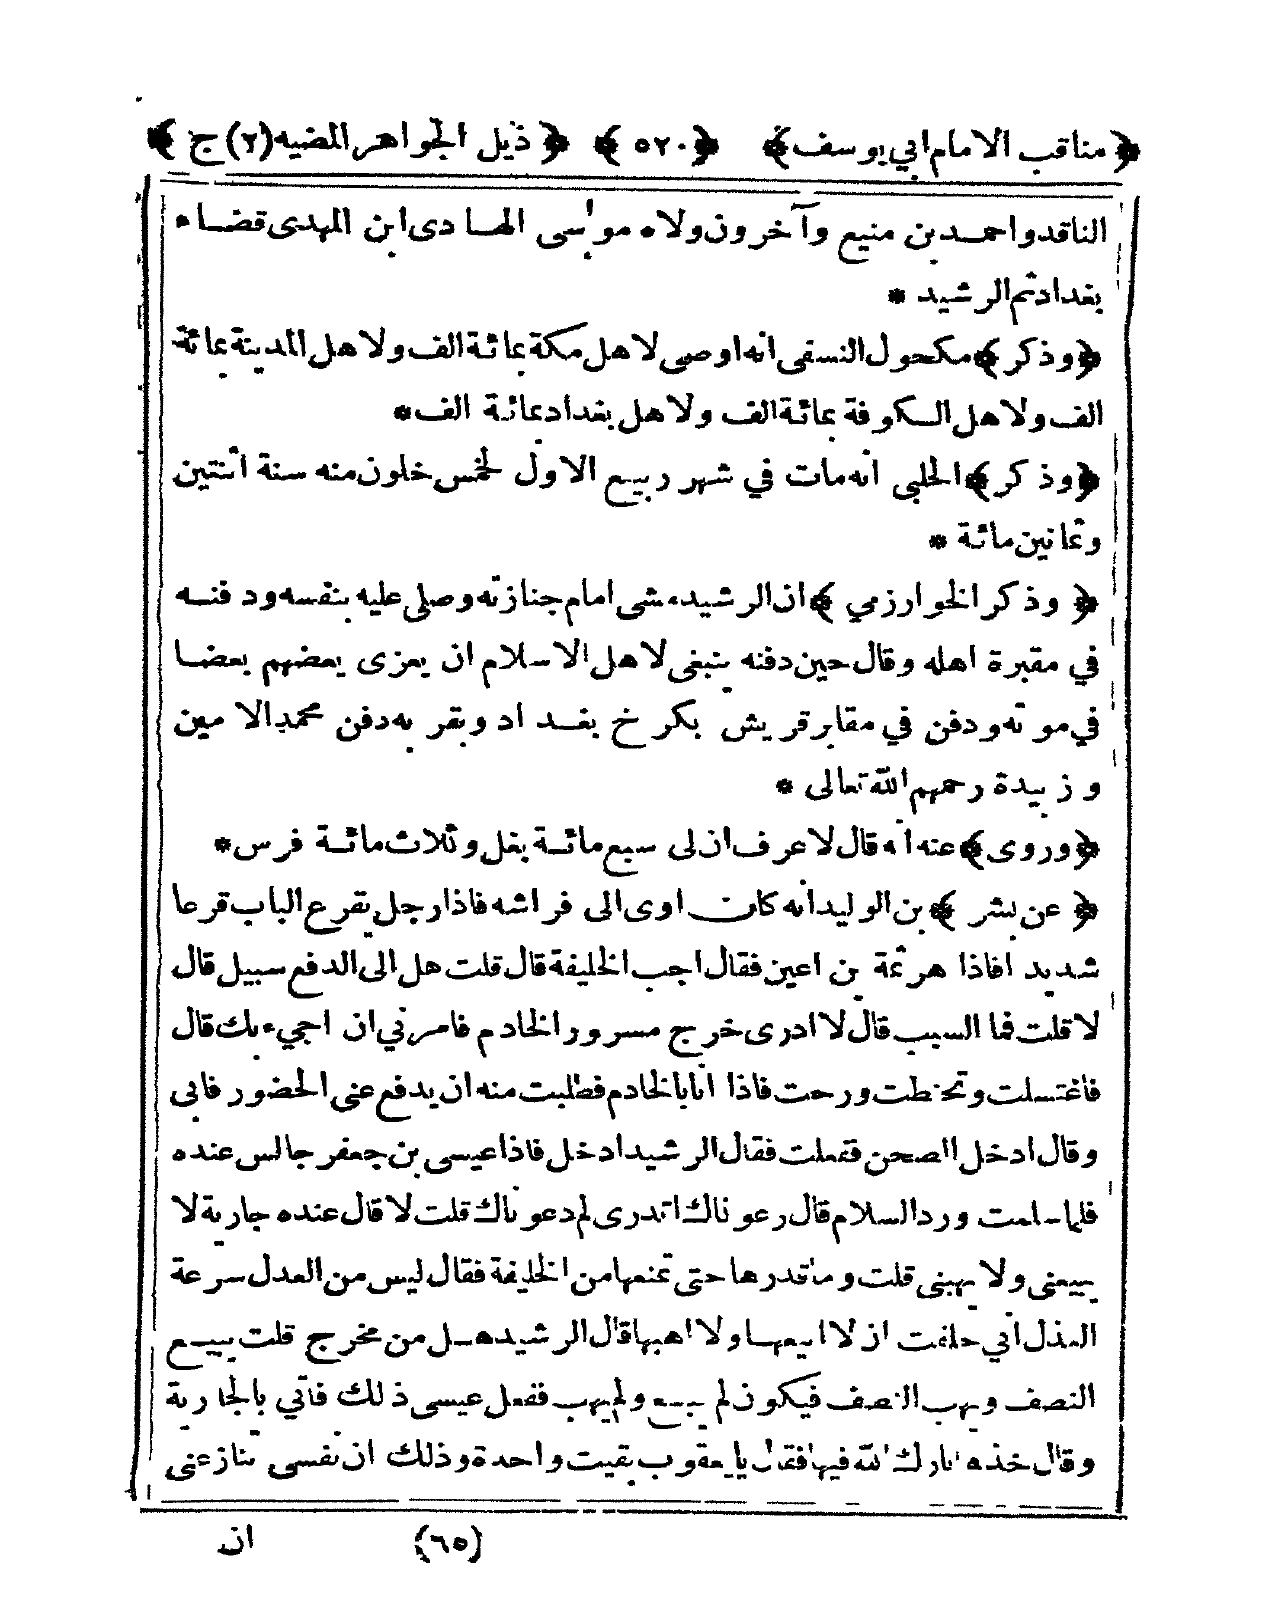 ﴿مناقب الامام ابي يوسف﴾ ﴿٥٢٠﴾ ﴿ذيل الجواهر المضيه (٢) ج﴾
الناقد واحمد بن منيع وآخرون ولاه موسى الهادى ابن المهدى قضاء
بغداد ثم الرشيد *
﴿وذكر﴾ مكحول النسفى انه اوصى لاهل مكة بمائة الف ولاهل المدينة بمائة
الف ولاهل الكوفة بمائة الف ولاهل بغداد بمائة الف *
﴿وذكر﴾ الحلبي انه مات في شهر ربيع الاول لخمس خلون منه سنة اثنتين
وثمانين مائة *
﴿وذكر الخوارزمي﴾ ان الرشيد مشى امام جنازته وصلى عليه بنفسه ودفنه
في مقبرة اهله وقال حين دفنه ينبغى لاهل الاسلام ان يعزى بعضهم بعضا
في موته ودفن في مقابر قريش بكرخ بغداد وبقربه دفن محمد الامين
وزبيدة رحمهم الله تعالى *
﴿وروى﴾ عنه انه قال لاعرف ان لى سبع مائة بغل وثلاث مائة فرس *
﴿عن بشر﴾ بن الوليد انه كان اوى الى فراشه فاذا رجل يقرع الباب قرعا
شديدا فاذا هرثمة بن اعين فقال اجب الخليفة قال قلت هل الى الدفع سبيل قال
لا قلت فما السبب قال لا ادرى خرج مسرور الخادم فامرني ان اجيء بك قال
فاغتسلت وتحنطت ورحت فاذا انا بالخادم فطلبت منه ان يدفع عنى الحضور فابى
وقال ادخل الصحن ففعلت فقال الرشيد ادخل فاذا عيسى بن جعفر جالس عنده
فلما سلمت ورد السلام قال رعوناك اتدرى لم دعوناك قلت لا قال عنده جارية لا
يبيعنى ولا يهبنى قلت وما قدرها حتى تمنعها من الخليفة فقال ليس من العدل سرعة
العذل اني حلفت ان لا ابيعها ولا اهبها قال الرشيد هل من مخرج قلت يبيع
النصف ويهب النصف فيكون لم يبع ولم يهب ففعل عيسى ذلك فاتي بالجارية
وقال خذه بارك الله فيها فقال يا يعقوب بقيت واحدة وذلك ان نفسى تنازعنى
(٦٥) ان